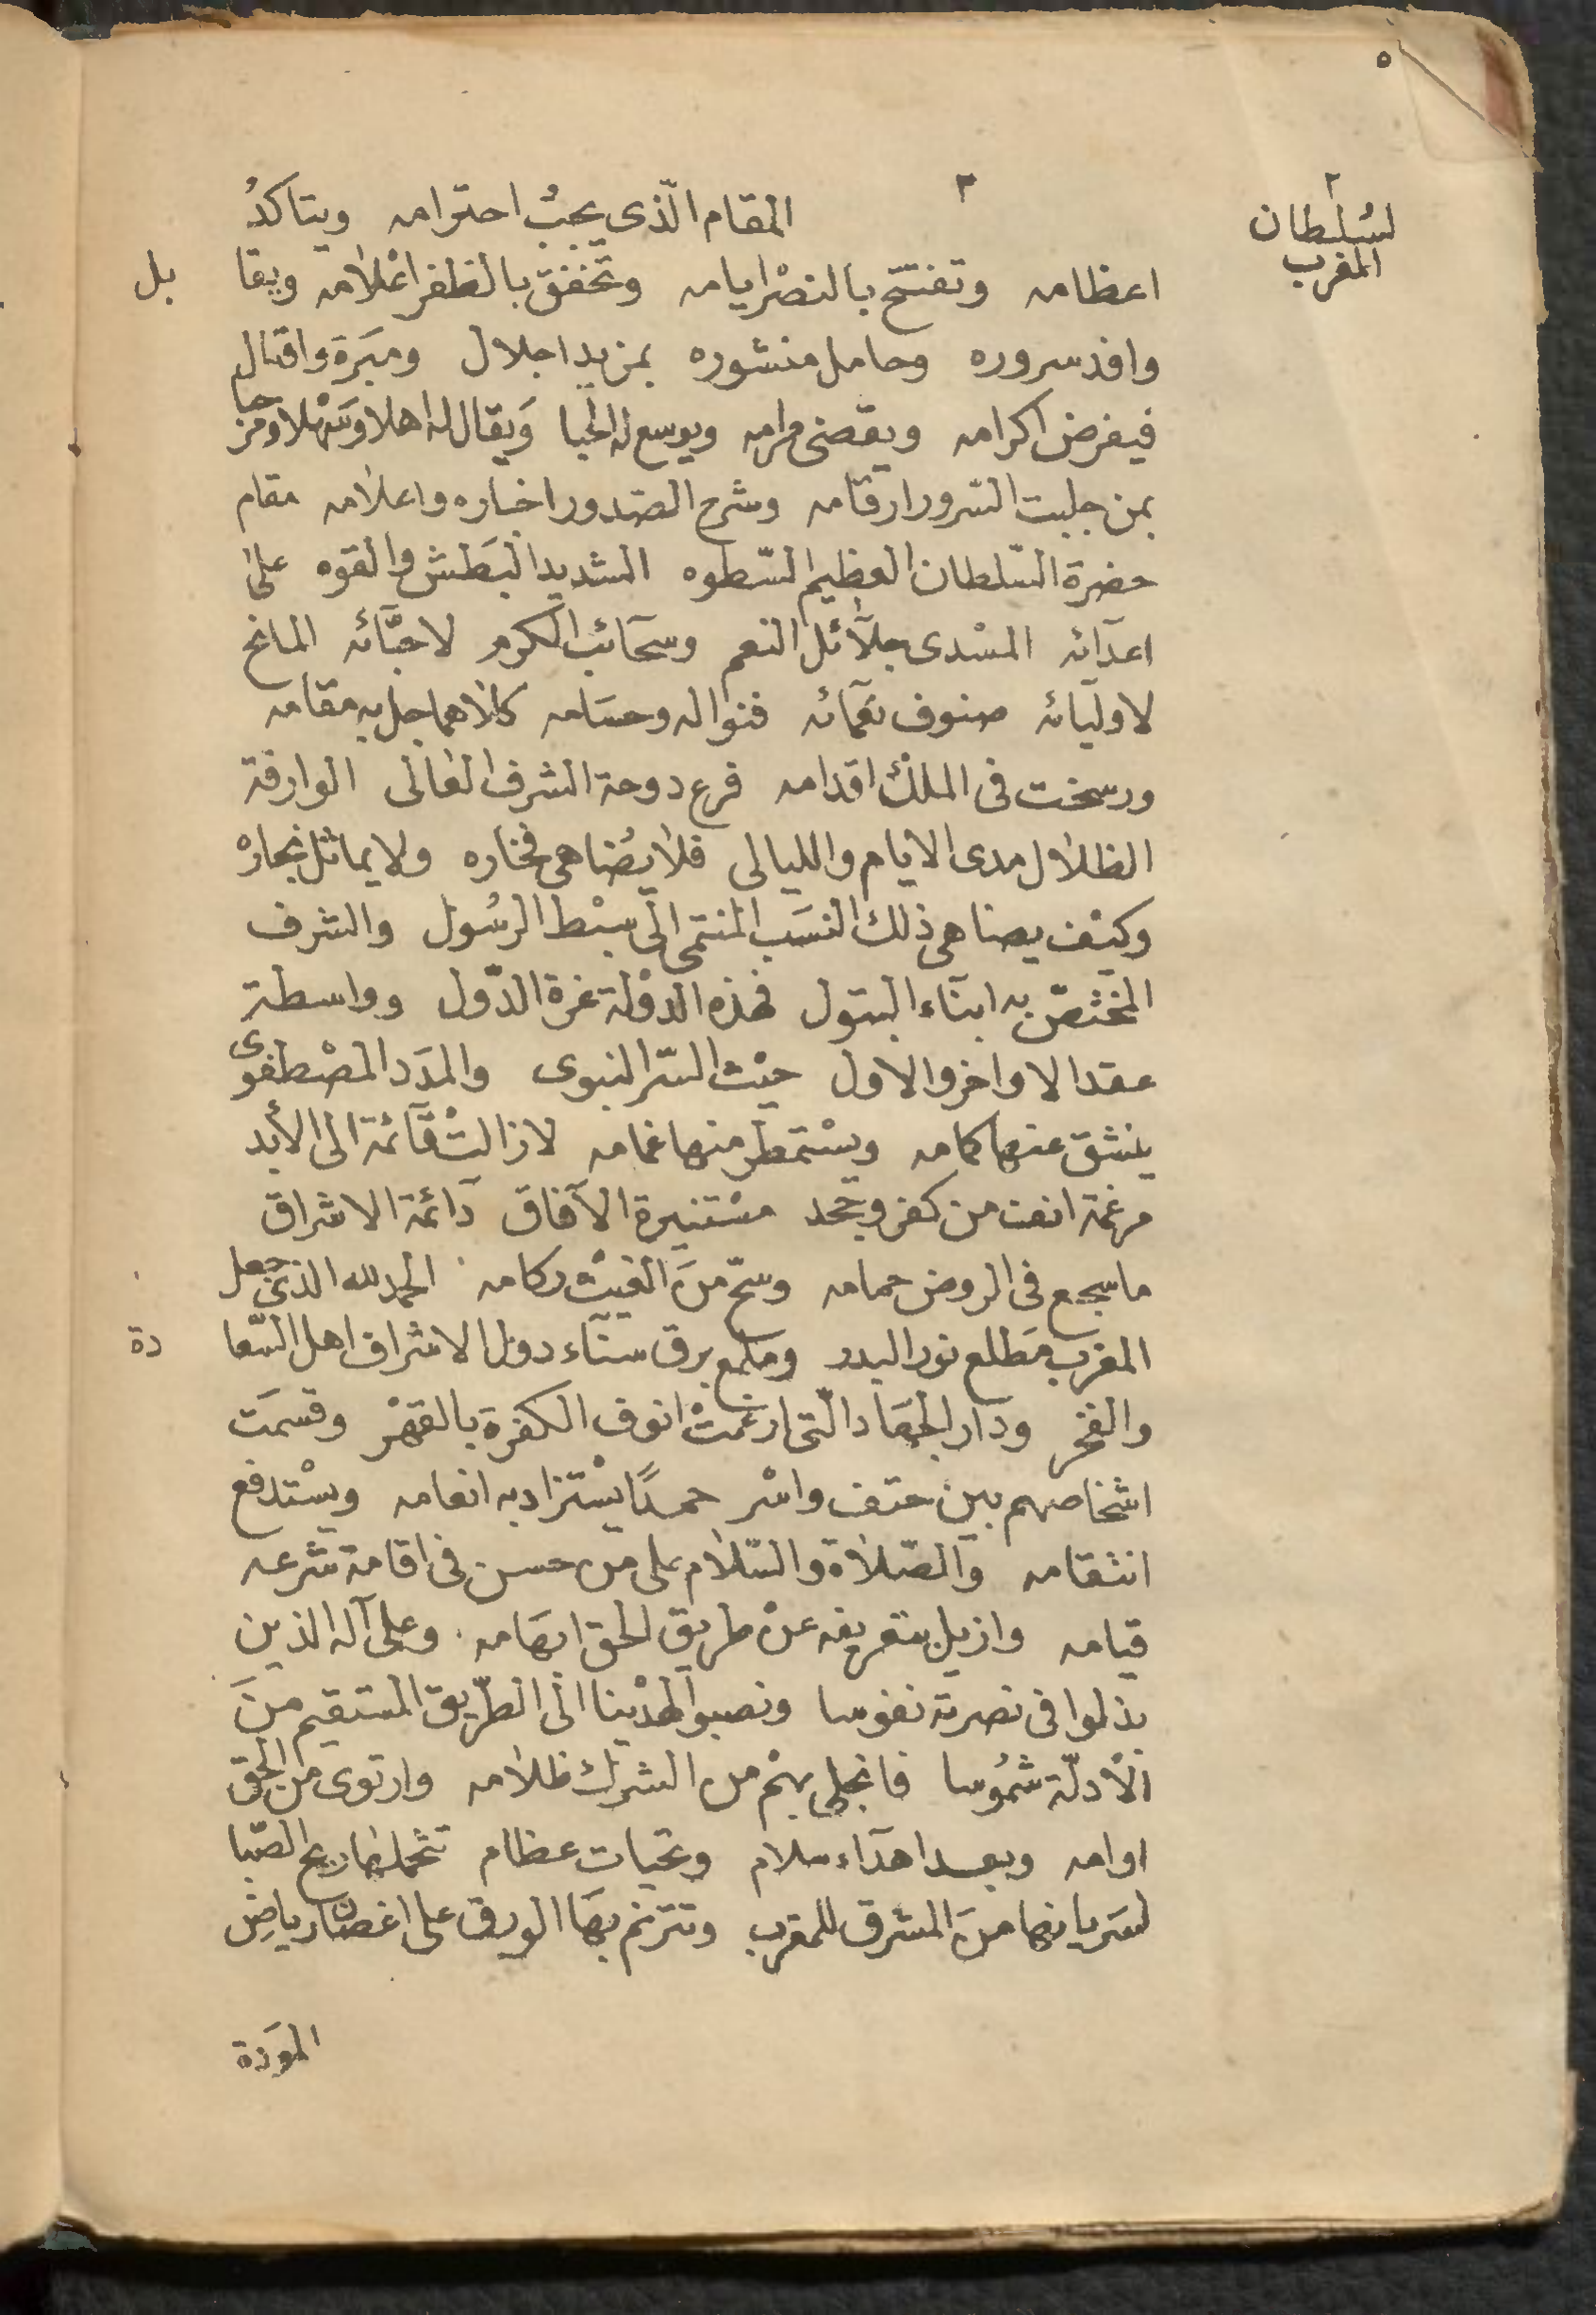 ٥
٢
لسُلطان
المغرب
٣
المقام الّذى يجبُ احترامه ويتاكدُ
اعظامه وتفتتح بالنصْر ايامه وتخفق بالظفر اعْلامه ويقا بل
وافد سروره وحامل منشوره بمزيد اجلال ومبَرة واقبال
فيفرض اكرامه ويقضى مرامه ويوسع له الحبا وَيقال له اهلا وسَهْلا ومرحبا
بمن جلبت السّرور ارقامه وشرح الصّدور اخباره واعلامه مقام
حضرة السّلطان العظيم السّطوه الشديد البَطش والقوه على
اعدآئه المسْدى جلآئل النعم وسحَائب الكرم لاحبَّائه المانح
لاوليائه صنوف نعَمآئه فنواله وحسَامه كلاهما جل به مقامه
ورسخت فى الملْك اقدامه فرع دوحة الشرف العَالى الوارفة
الظلال مدى الايام والليالى فلا يُضاهى فخاره ولا يماثل نجاره
وكيْف يضاهى ذلك النسَب المنتمى الى سبْط الرسُول والشرف
المختصّ به ابنآء البتول فهذه الدوْلة غرة الدّول وواسطة
عقد الاواخر والاول حيْث السّر النبوى والمدَد المصْطفوى
ينشق عنهما كمامه ويسْتمطر منها غمامه لا زالتْ قآئمة الى الأبد
مرغمة انف من كفر وجحد مسْتنيرة الآفاق دَائمة الاشراق
ما سجع فى الروض حمامه وسحّ منَ الغيْث ركامه الحمد لله الذى جعل
المغرب مَطلع نور البدر وملمع برق سنآء دول الاشراف اهل السّعا دة
والفخر ودَار الجهَاد الّتى ارغمتْ انوف الكفرة بالقهْر وقسمَت
اشخاصهم بين حتف واسْر حمدًا يسْتزاد به انعامه ويسْتدفع
انتقامه والصّلاة والسّلام على من حسن فى اقامة شرعه
قيامه وازيل بتعريفه عنْ طريق الحق ابهَامه وعلى آله الذين
بذلوا فى نصرته نفوسا ونصبوا لهدْينا الى الطّريق المستقيم منَ
الأدلّة شمُوسا فانجلى بهمْ من الشرك ظلامه وارتوى من الحق
اوامه وبعد اهدآء سلام وتحيات عظام تتحملها ريح الصّبا
لسَريانها منَ المشرق للمغرب وتترنم بهَا الورق على اغصان رياض
المودة